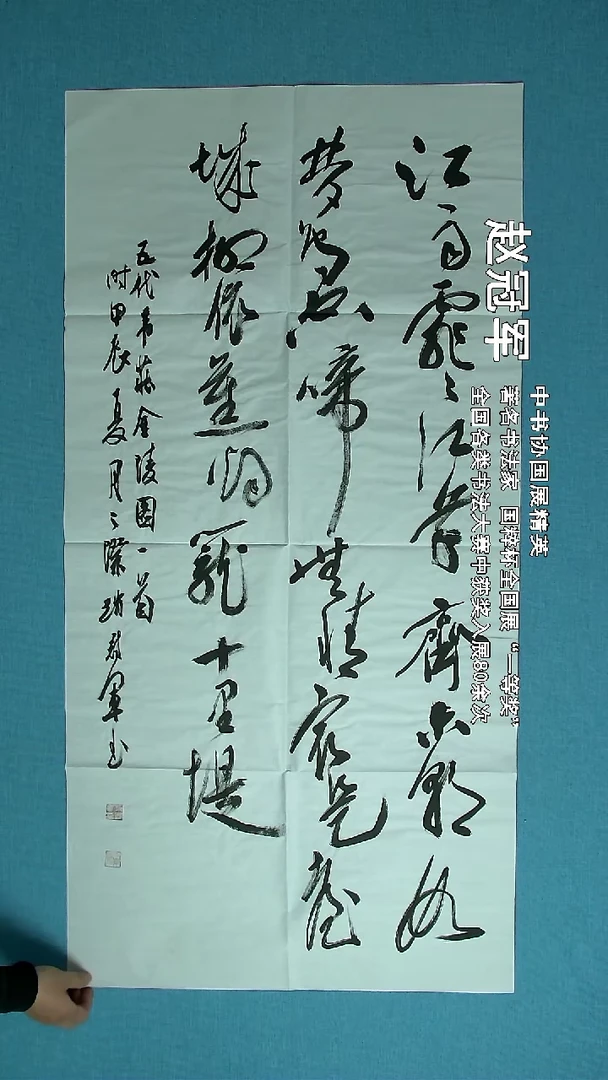 江雨霏〻江草齊六朝如
夢鳥空啼無情最是臺
城柳依舊烟籠十里堤
五代韋莊金陵圖一首
时甲辰夏月之際冠軍书
赵冠军
中书协国展精英
著名书法家 国粹杯全国展“一等奖”
全国各类书法大赛中获奖入展80余次